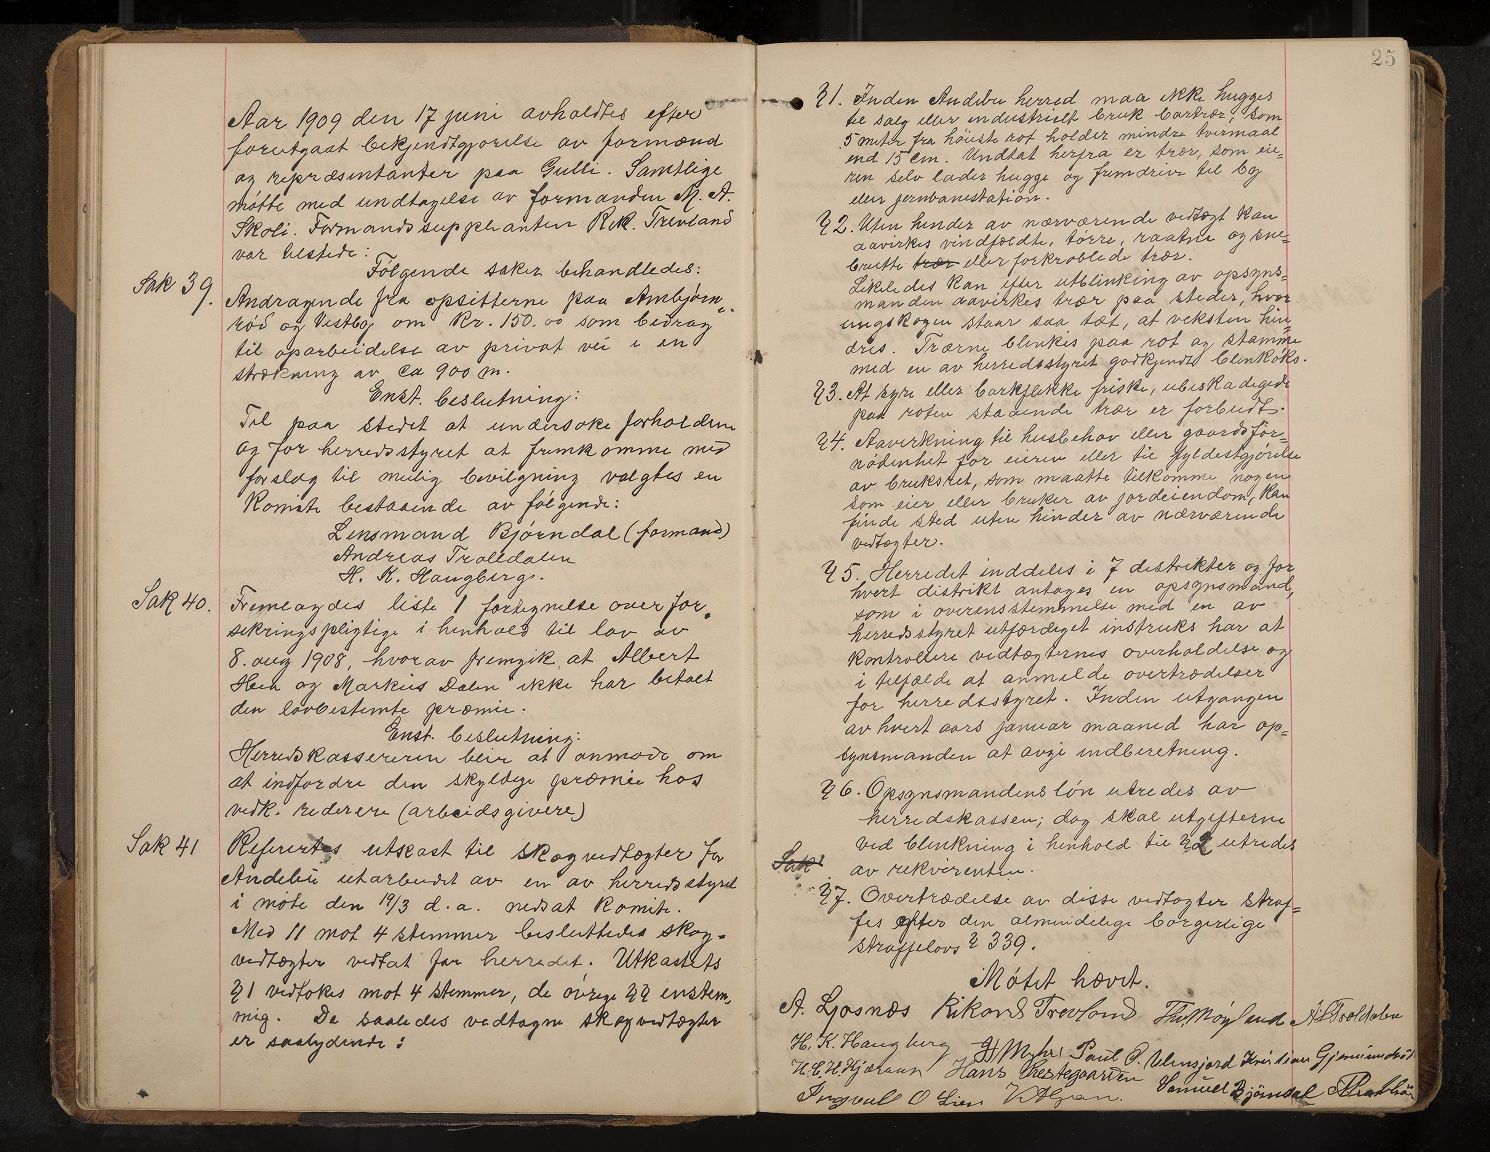 Aar 1909 den 17 juni avholdtes efter
forutgaat bekjendtgjørelse av formænd
og repræsentanter paa Gulli. Samtlige
møtte med undtagelse av formanden M. A.
Skoli. Formandssuppleanten Rik. Trevland
var tilstede:
Følgende saker behandledes:
Sak 39.
Andragende fra opsitterne paa Ambjørn-
rød og Vestby om Kr. 150.00 som bidrag
til oparbeidelse av privat vei i en
strækning av ca 900 m.
Enst. beslutning:
Til paa stedet at undersøke forholdene
og for herredsstyret at fremkomme med
forslag til mulig bevilgning valgtes en
Komite bestaaende av følgende:
Lensmand Bjørndal (formand)
Andreas Trolldalen
H. K. Haugberg.
Sak 40.
Fremlagdes liste 1 fortegnelse over for-
sekringspligtige i henhold til lov av
8. aug 1908, hvorav fremgik at Albert
Hem og Markus Dalen ikke har betalt
den lovbestemte præmie.
Enst. beslutning:
Herredskassereren blir at anmode om
at indfordre den skyldige præmie hos
vedk. rederere (arbeidsgivere)
Sak 41
Refereertes utkast til skogvedtægter for
Andebu utarbeidet av en av herredsstyret
i møte den 19/3 d. a. nedsat komite.
Med 11 mot 4 stemmer besluttedes skog-
vedtægter vedtat for herredet. Utkastets
§ 1 vedtokes mot 4 stemmer, de øvrige §§ enstem-
mig. De saaledes vedtagne skogvedtægter
er saalydende:
25
§ 1. Inden Andebu herred maa ikke hugges
til salg eller industrielt bruk bartrær, som
5 meter fra høiste rot holder mindre tvermaal
end 15 cm. Undtat herfra er trær, som eie-
ren selv lader hugge og fremdrive til by
eller jernbanestation.
§ 2. Uten hinder av nærværende vedtægt kan
aavirkes vindfældte, tørre, raatne og sne-
brutte trær eller forkrøblede trær.
Likeledes kan efter utblinking av opsyns-
manden aavirkes trær paa steder, hvor
ungskogen staar saa tæt, at veksten hin-
dres. Trærne blinkes paa rot og stamme
med en av herredsstyret godkjendt blinkøks.
§ 3. At syre eller barkflekke friske, ubeskadigede
paa roten staaende trær er forbudt.
§ 4. Aavirkning til husbehov eller gaardsfor-
nødenhet for eieren eller til fyldestgjørelse
av bruksret, som maatte tilkomme nogen
som eier eller bruker av jordeiendom, kan
finde sted uten hinder av nærværende
vedtægter.
§ 5. Herredet inddeles i 7 distrikter og for
hvert distrikt antages en opsynsmand,
som i overensstemmelse med en av
herredsstyret utfærdiget instruks har at
kontrollere vedtægternes overholdelse og
i tilfælde at anmelde overtrædelser
for herredsstyret. Inden utgangen
av hvert aars januar maaned har op-
synsmanden at avgi indberetning.
§ 6. Opsynsmandens løn utredes av
herredskassen; dog skal utgifterne
ved blinkning i henhold til § 2 utredes
Sak
av rekvirenten.
§ 7. Overtrædelse av disse vedtægter straf-
fes efter den almindelige borgerlige
straffelovs § 339.
Møtet hævet.
A. Ljosnæs Rikard Trevland Th. Møyland A L Trolldalen
H. K. Haugberg Myhre Paul O. Ulensjord Kristian Gjermundrød
H. E. H. Hjæraas Hans Prestegaarden Samuel Bjørndal
Ingvul O Lien